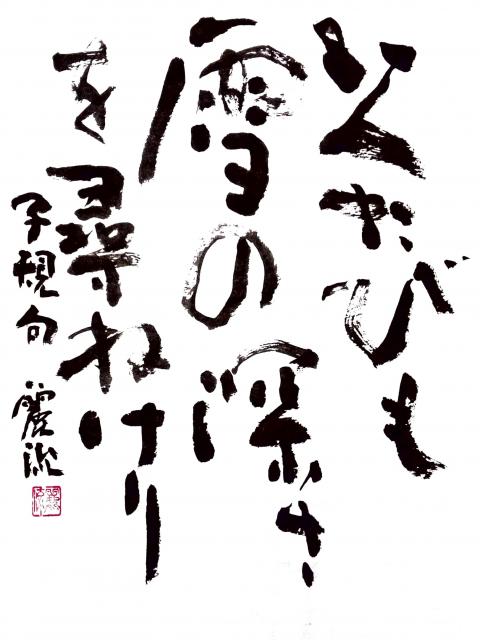 いくたびも
雪の深さ
を尋ねけり
子規句